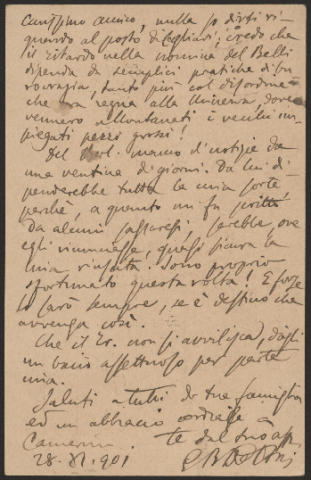 Carissimo amico, nulla so dirti ri-
guardo al posto di Cagliari; credo che
il ritardo nella nomina del Belli
dipenda da semplici pratiche di bu
rocrazia, tanto più col disordine
che ora regna alla Minerva, dove
vennero allontanati i vecchi im-
piegati pezzi grossi!
Del manco d'notizie da
una ventina di giorni. Da lui di
penderebbe tutta la mia sorte
perchè, a quanto mi fu scritto
da alcuni sassaresi, sarebbe, ove
egli rinunziasse, quasi sicura la
mia riuscita. Sono proprio
sfortunato questa volta! E forse
lo sarò sempre, se è destino che
avvenga così.
Che il non si avvilisca, dagli
un bacio affettuoso per parte
mia.
Saluti a tutti di tua famiglia
ed un abbraccio cordiale a
te dal tuo aff.
Camerino
28. XI. 901 G B De Toni